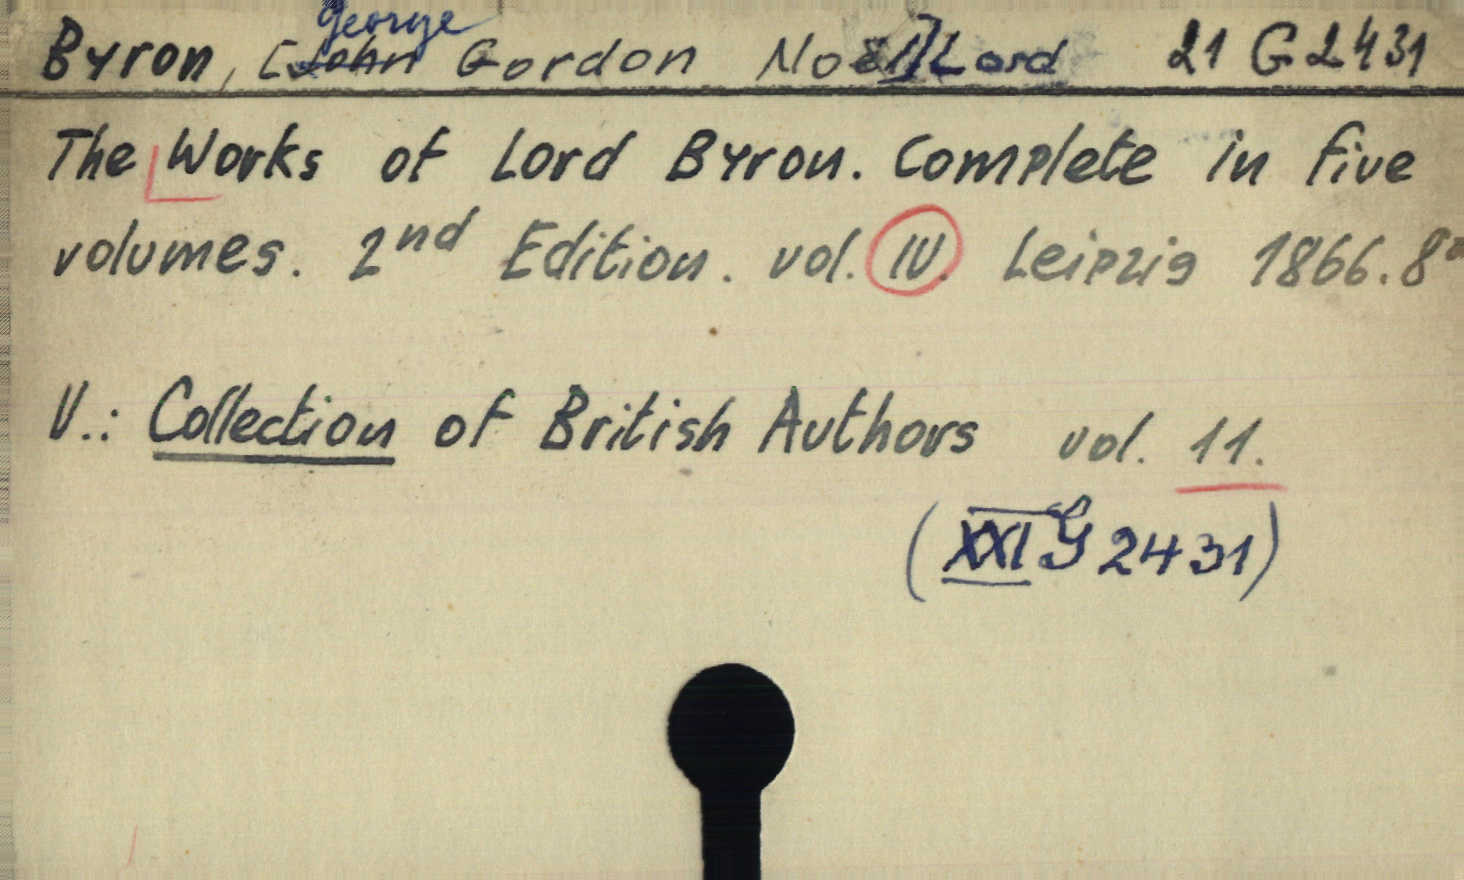 Byron, [John George Gordon Noël] Lord 21 G 2431
The Works of Lord Byron. Complete in five
volumes. 2nd Edition. vol. IV. Leipzig 1866. 8°
V.: Collection of British Authors vol. 11.
(XXI G 2431)